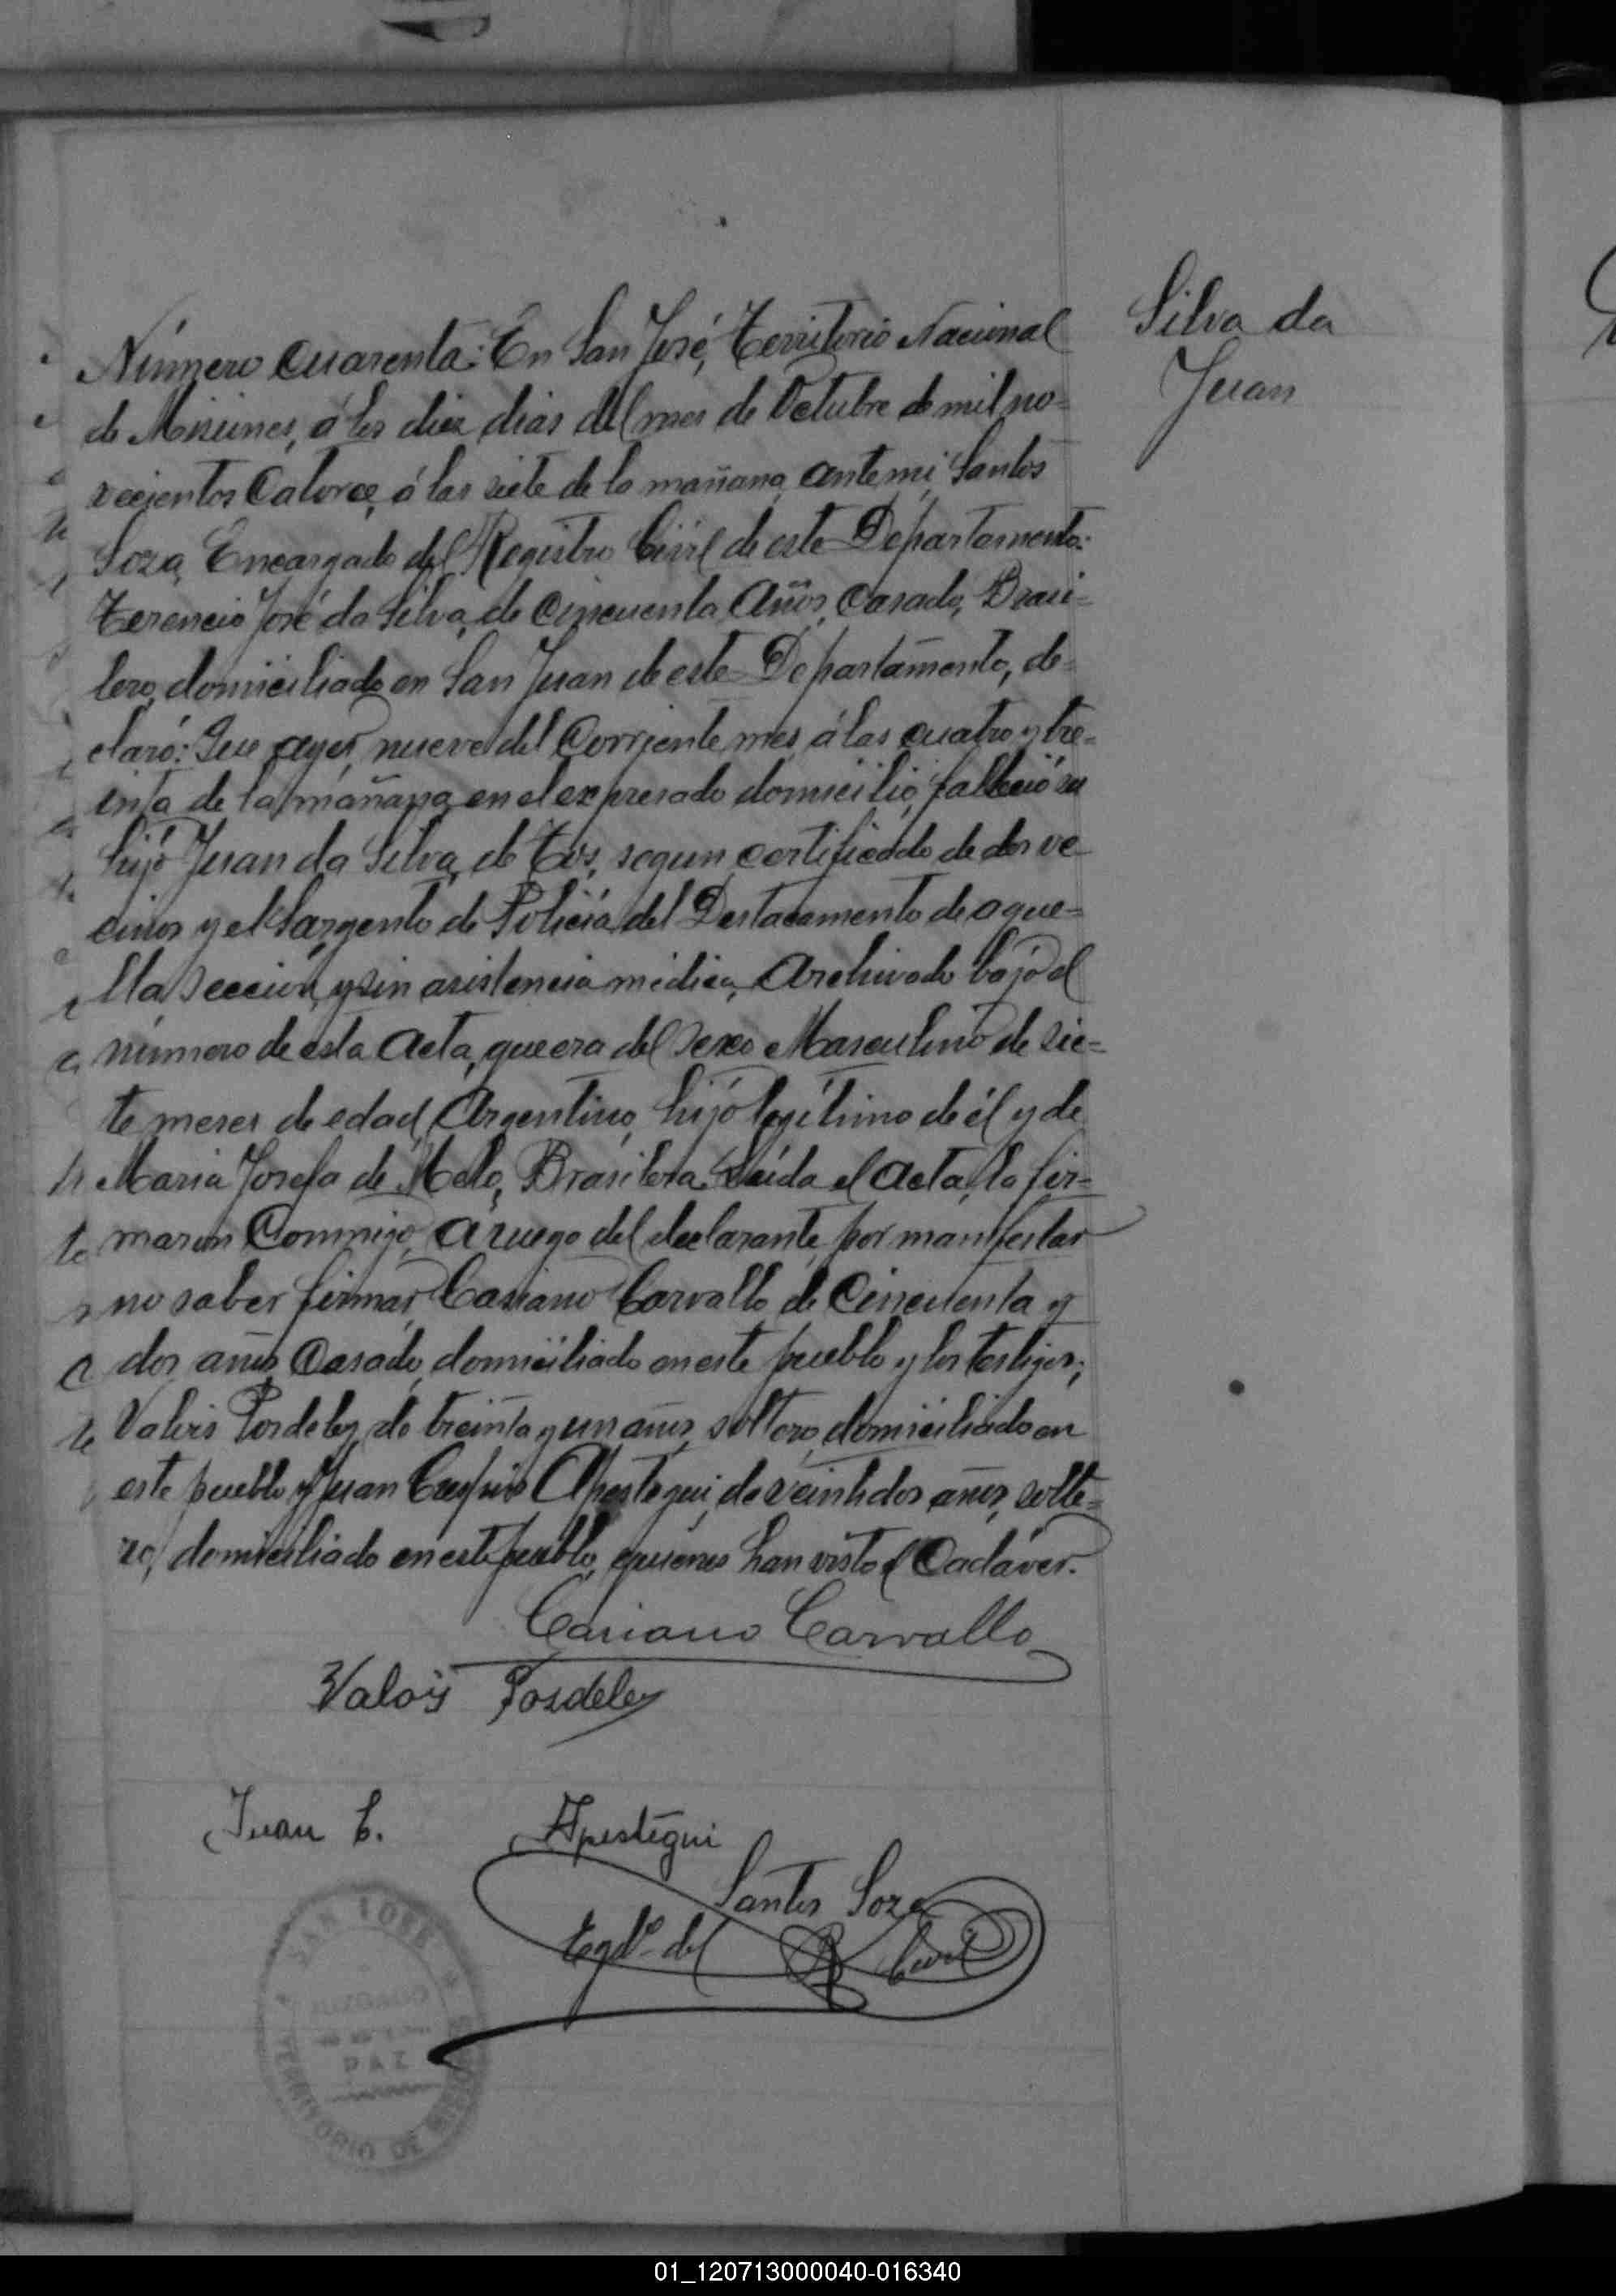 Silva da
Juan
Número cuarenta: En San José, Territorio Nacional
de Misiones, á los diez dias del mes de Octubre de mil no=
vecientos Catorce, á las siete de la mañana, ante mi, Santos
Soza, Encargado del Registro Civil de este Departamento:
Terencio José da Silva, de Cincuenta Años, Casado, Brasi=
lero, domiciliado en San Juan de este Departamento, de=
claró: Que ayer, nueve del Corriente mes, á las cuatro y tre=
inta de la mañana, en el expresado domicilio, falleció su
hijo Juan da Silva, de Tos, segun certificado de dos ve
cinos y el Sargento de Policía del Destacamento de aque=
lla Sección, y sin asistencia médica, Archivado bajo el
número de esta Acta, que era del Sexo Masculino de sie=
te meses de edad, Argentino, hijo legítimo de él y de
Maria Josefa de Melo, Brasilera. Leída el Acta, la fir=
maron Conmigo, A ruego del declarante, por manifestar
no saber firmar, Casiano Carvallo de Cincuenta y
dos años Casado, domiciliado en este pueblo y los testigos,
Valois Posdeley, de treinta y un años, soltero, domiciliado en
este pueblo y Juan Apestegui, de veintidos años, solte=
ro, domiciliado en este pueblo, quienes han visto el Cadáver.
Casiano Carvallo
Valois Posdeley
Juan C. Apestegui
Santos Soza
Egdo. del R. Civil
SAN JOSE
JUZGADO
DE
PAZ
TERRITORIO DE MISIONES
01_120713000040-016340